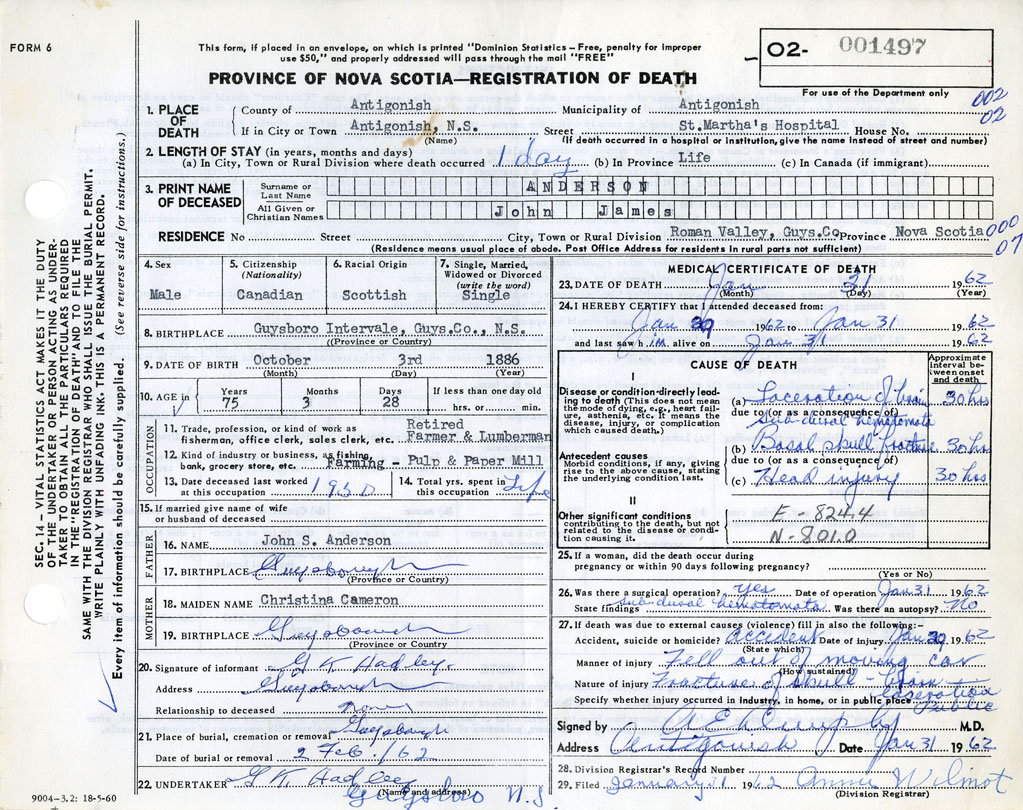 FORM 6
This form, if placed in an envelope, on which is printed "Dominion Statistics – Free, penalty for improper
use $50," and properly addressed will pass through the mail "FREE"
PROVINCE OF NOVA SCOTIA—REGISTRATION OF DEATH
O2- 001497
For use of the Department only
002
02
SEC. 14 – VITAL STATISTICS ACT MAKES IT THE DUTY
OF THE UNDERTAKER OR PERSON ACTING AS UNDER-
TAKER TO OBTAIN ALL THE PARTICULARS REQUIRED
IN THE "REGISTRATION OF DEATH" AND TO FILE THE
SAME WITH THE DIVISION REGISTRAR WHO SHALL ISSUE THE BURIAL PERMIT.
WRITE PLAINLY WITH UNFADING INK. THIS IS A PERMANENT RECORD.
Every item of information should be carefully supplied. (See reverse side for instructions.)
1. PLACE OF DEATH
County of Antigonish Municipality of Antigonish
If in City or Town Antigonish, N.S. Street St.Martha's Hospital House No.
(Name) (If death occurred in a hospital or institution, give the name instead of street and number)
2. LENGTH OF STAY (in years, months and days)
(a) In City, Town or Rural Division where death occurred 1 day (b) In Province Life (c) In Canada (if immigrant)
3. PRINT NAME OF DECEASED
Surname or Last Name ANDERSON
All Given or Christian Names John James
RESIDENCE No Street City, Town or Rural Division Roman Valley, Guys.Co Province Nova Scotia 000
07
(Residence means usual place of abode. Post Office Address for residents in rural parts not sufficient)
4. Sex
Male
5. Citizenship
(Nationality)
Canadian
6. Racial Origin
Scottish
7. Single, Married,
Widowed or Divorced
(write the word)
Single
8. BIRTHPLACE Guysboro Intervale, Guys.Co., N.S.
((Province or Country)
9. DATE OF BIRTH October 3rd 1886
(Month) (Day) (Year)
10. AGE in
Years Months Days If less than one day old
75 3 28 hrs. or min.
OCCUPATION
11. Trade, profession, or kind of work as
fisherman, office clerk, sales clerk, etc. Retired
Farmer & Lumberman
12. Kind of industry or business, as fishing,
bank, grocery store, etc. Farming – Pulp & Paper Mill
13. Date deceased last worked
at this occupation 1950
14. Total yrs. spent in
this occupation Life
15. If married give name of wife
or husband of deceased
FATHER
16. NAME John S. Anderson
17. BIRTHPLACE Guysborough
(Province or Country)
MOTHER
18. MAIDEN NAME Christina Cameron
19. BIRTHPLACE Guysborough
(Province or Country)
20. Signature of informant G K Hadley.
Address Guysborough
Relationship to deceased none
21. Place of burial, cremation or removal Guysborough
Date of burial or removal 2 Feb /62
22. UNDERTAKER G. K. Hadley
(Name and address)
Guysboro N.S
9004–3.2: 18-5-60
MEDICAL CERTIFICATE OF DEATH
23. DATE OF DEATH Jan 31 1962
(Month) (Day) (Year)
24. I HEREBY CERTIFY that I attended deceased from:
Jan 30 1962 to Jan 31 1962
and last saw him alive on Jan 31 1962
CAUSE OF DEATH
Approximate
interval be-
tween onset
and death
I
Disease or condition directly lead-
ing to death (This does not mean
the mode of dying, e.g., heart fail-
ure, asthenia, etc. It means the
disease, injury, or complication
which caused death.)
(a) Laceration of brain 30 hrs
due to (or as a consequence of)
sub-dural hematomata
(b) Basal skull fracture 30 hrs
due to (or as a consequence of)
(c) Head injury 30 hrs
Antecedent causes
Morbid conditions, if any, giving
rise to the above cause, stating
the underlying condition last.
II
Other significant conditions
contributing to the death, but not
related to the disease or condi-
tion causing it.
E-824.4
N-801.0
25. If a woman, did the death occur during
pregnancy or within 90 days following pregnancy?
(Yes or No)
26. Was there a surgical operation? yes Date of operation Jan 31 1962
State findings sub-dural hematomata Was there an autopsy? No
27. If death was due to external causes (violence) fill in also the following:–
Accident, suicide or homicide? Accident Date of injury Jan 30 1962
(State which)
Manner of injury Fell out of moving car
(How sustained)
Nature of injury Fracture of skull - brain
laceration
Specify whether injury occurred in industry, in home, or in public place Public
Signed by M.D.
Address Antigonish Date Jan 31 1962
28. Division Registrar's Record Number
29. Filed January 31 1962 Annie Wilmot
(Division Registrar)